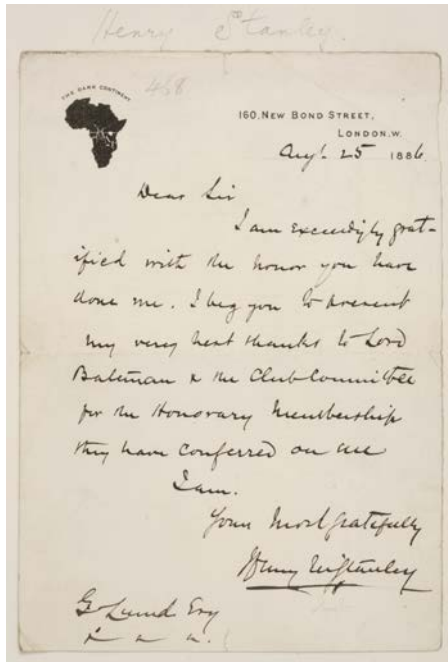 Henry Stanley.
468
THE DARK CONTINENT
160, NEW BOND STREET,
LONDON. W.
Augt. 25 1886
Dear Sir
I am exceedingly grat-
ified with the honor you have
done me. I beg you to present
my very best thanks to Lord
Bateman & the Club Committee
for the Honorary Membership
they have conferred on me
I am.
Yours Most gratefully
Henry M Stanley
G. Lumd Esq